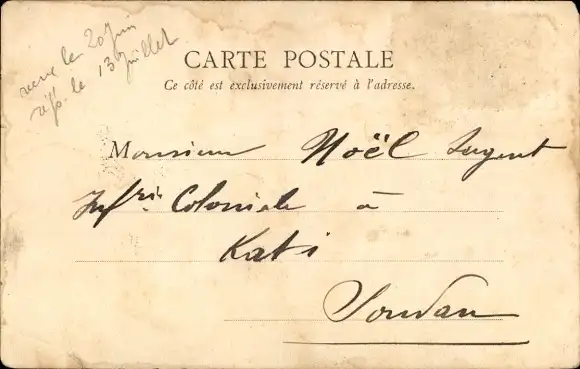 reçue le 20 Juin
rép. le 13 Juillet
CARTE POSTALE
Ce côté est exclusivement réservé à l'adresse.
Monsieur Noël Sergent
Inf.rie Coloniale à
Kati
Soudan